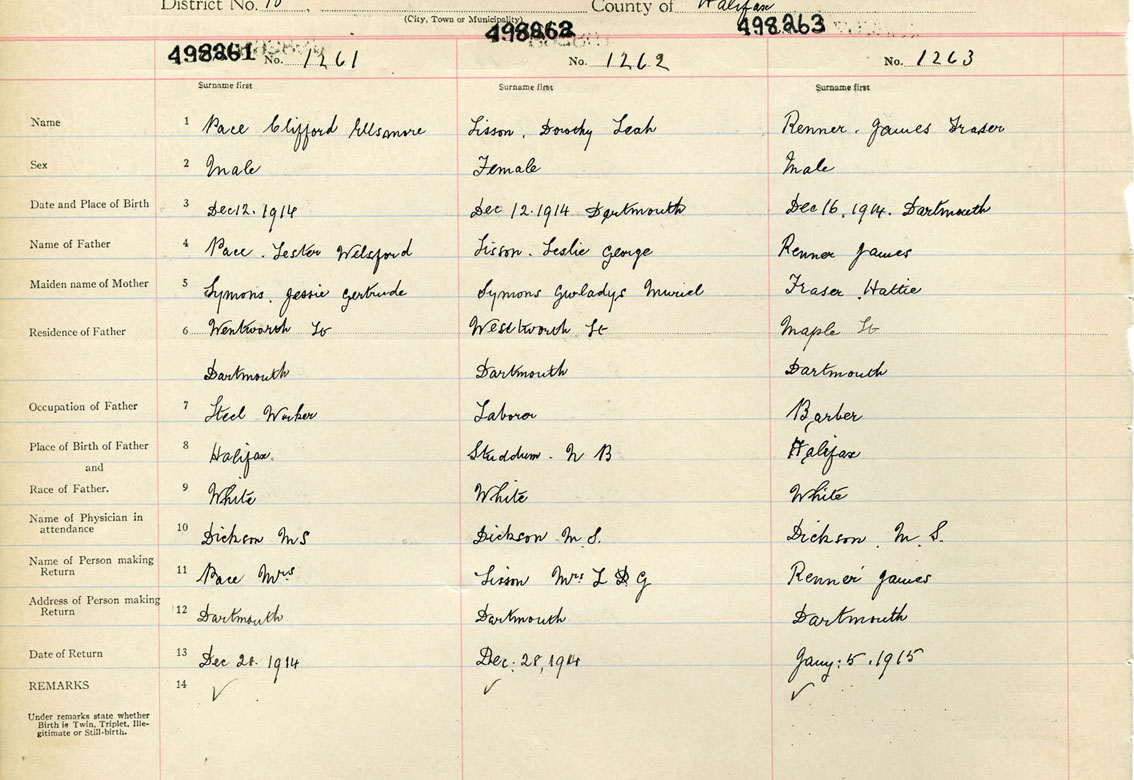 District No. 10 County of Halifax
(City, Town or Municipality)
498261 498262 498263
No. 1261 No. 1262 No. 1263
Surname first Surname first Surname first
Name 1 Pace Clifford Ellsmore Sisson. Dorothy Leah Renner. James Fraser
Sex 2 Male Female Male
Date and Place of Birth 3 Dec 12. 1914 Dec 12. 1914 Dartmouth Dec 16, 1914. Dartmouth
Name of Father 4 Pace. Lester Welsford Sisson. Leslie George Renner James
Maiden name of Mother 5 Symons. Jessie Gertrude Symons Gwladys Muriel Fraser. Hattie
Residence of Father 6 Wentworth St Westworth St Maple St
Dartmouth Dartmouth Dartmouth
Occupation of Father 7 Steel Worker Laborer Barber
Place of Birth of Father 8 Halifax. N B Halifax
and
Race of Father. 9 White White White
Name of Physician in 10 Dickson M S Dickson M. S. Dickson. M. S.
attendance
Name of Person making 11 Pace Mrs Sisson Mrs L G Renner James
Return
Address of Person making 12 Dartmouth Dartmouth Dartmouth
Return
Date of Return 13 Dec 28. 1914 Dec: 28, 1914 Jany: 5, 1915
REMARKS 14 ✓ ✓ ✓
Under remarks state whether
Birth is Twin, Triplet, Ille-
gitimate or Still-birth.